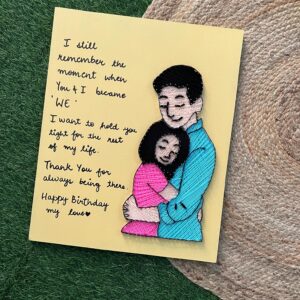 I still
remember the
moment when
You & I became
'WE'
I want to hold you
tight for the rest
of my life.
Thank You for
always being there.
Happy Birthday
my love♥